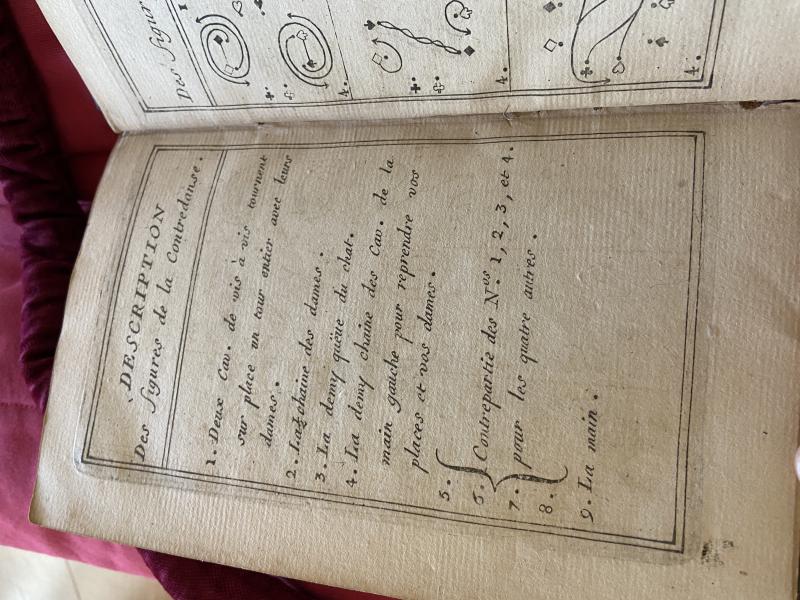 DESCRIPTION
Des figures de la Contredanse.
1. Deux Cav. de vis à vis tournent
sur place un tour entier avec leurs
dames.
2. La chaine des dames.
3. La demy queüe du chat.
4. La demy chaine des Cav. de la
main gauche pour reprendre vos
places et vos dames.
5.
6. Contrepartie des Nos. 1, 2, 3, et 4.
7. pour les quatre autres.
8.
9. La main.
Des figur
4.
4.
4.